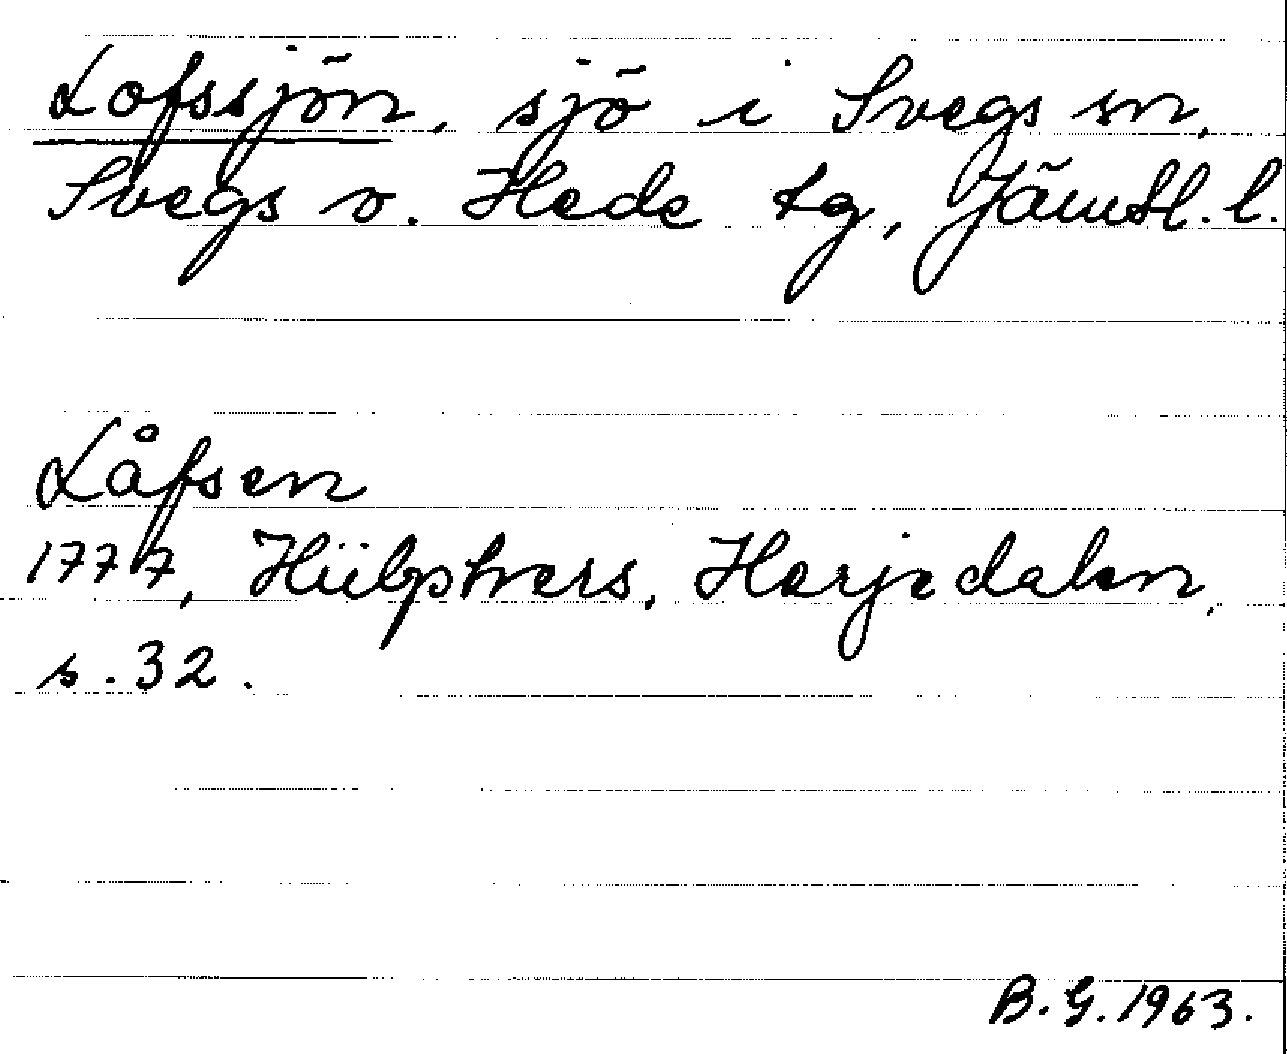 Lofssjön, sjö i Svegs sn,
Svegs o. Hede tg, Jämtl. l.
Låfsen
1777, Hülphers, Herjedalen,
s. 32.
B. G. 1963.